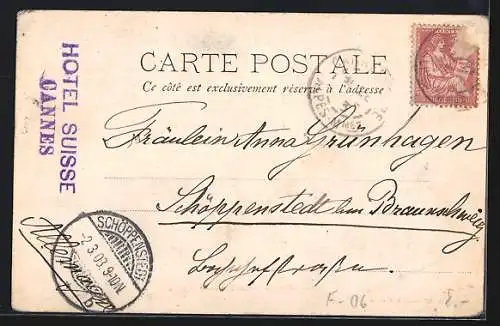 CARTE POSTALE
Ce côté est exclusivement réservé à l'adresse
HOTEL SUISSE
CANNES
Fräulein Anna Grünhagen
Schöppenstedt bei Braunschweig
Bahnhofstraße.
SCHÖPPENSTEDT
-2.3.03.9-10N.
b
F-06
8.-